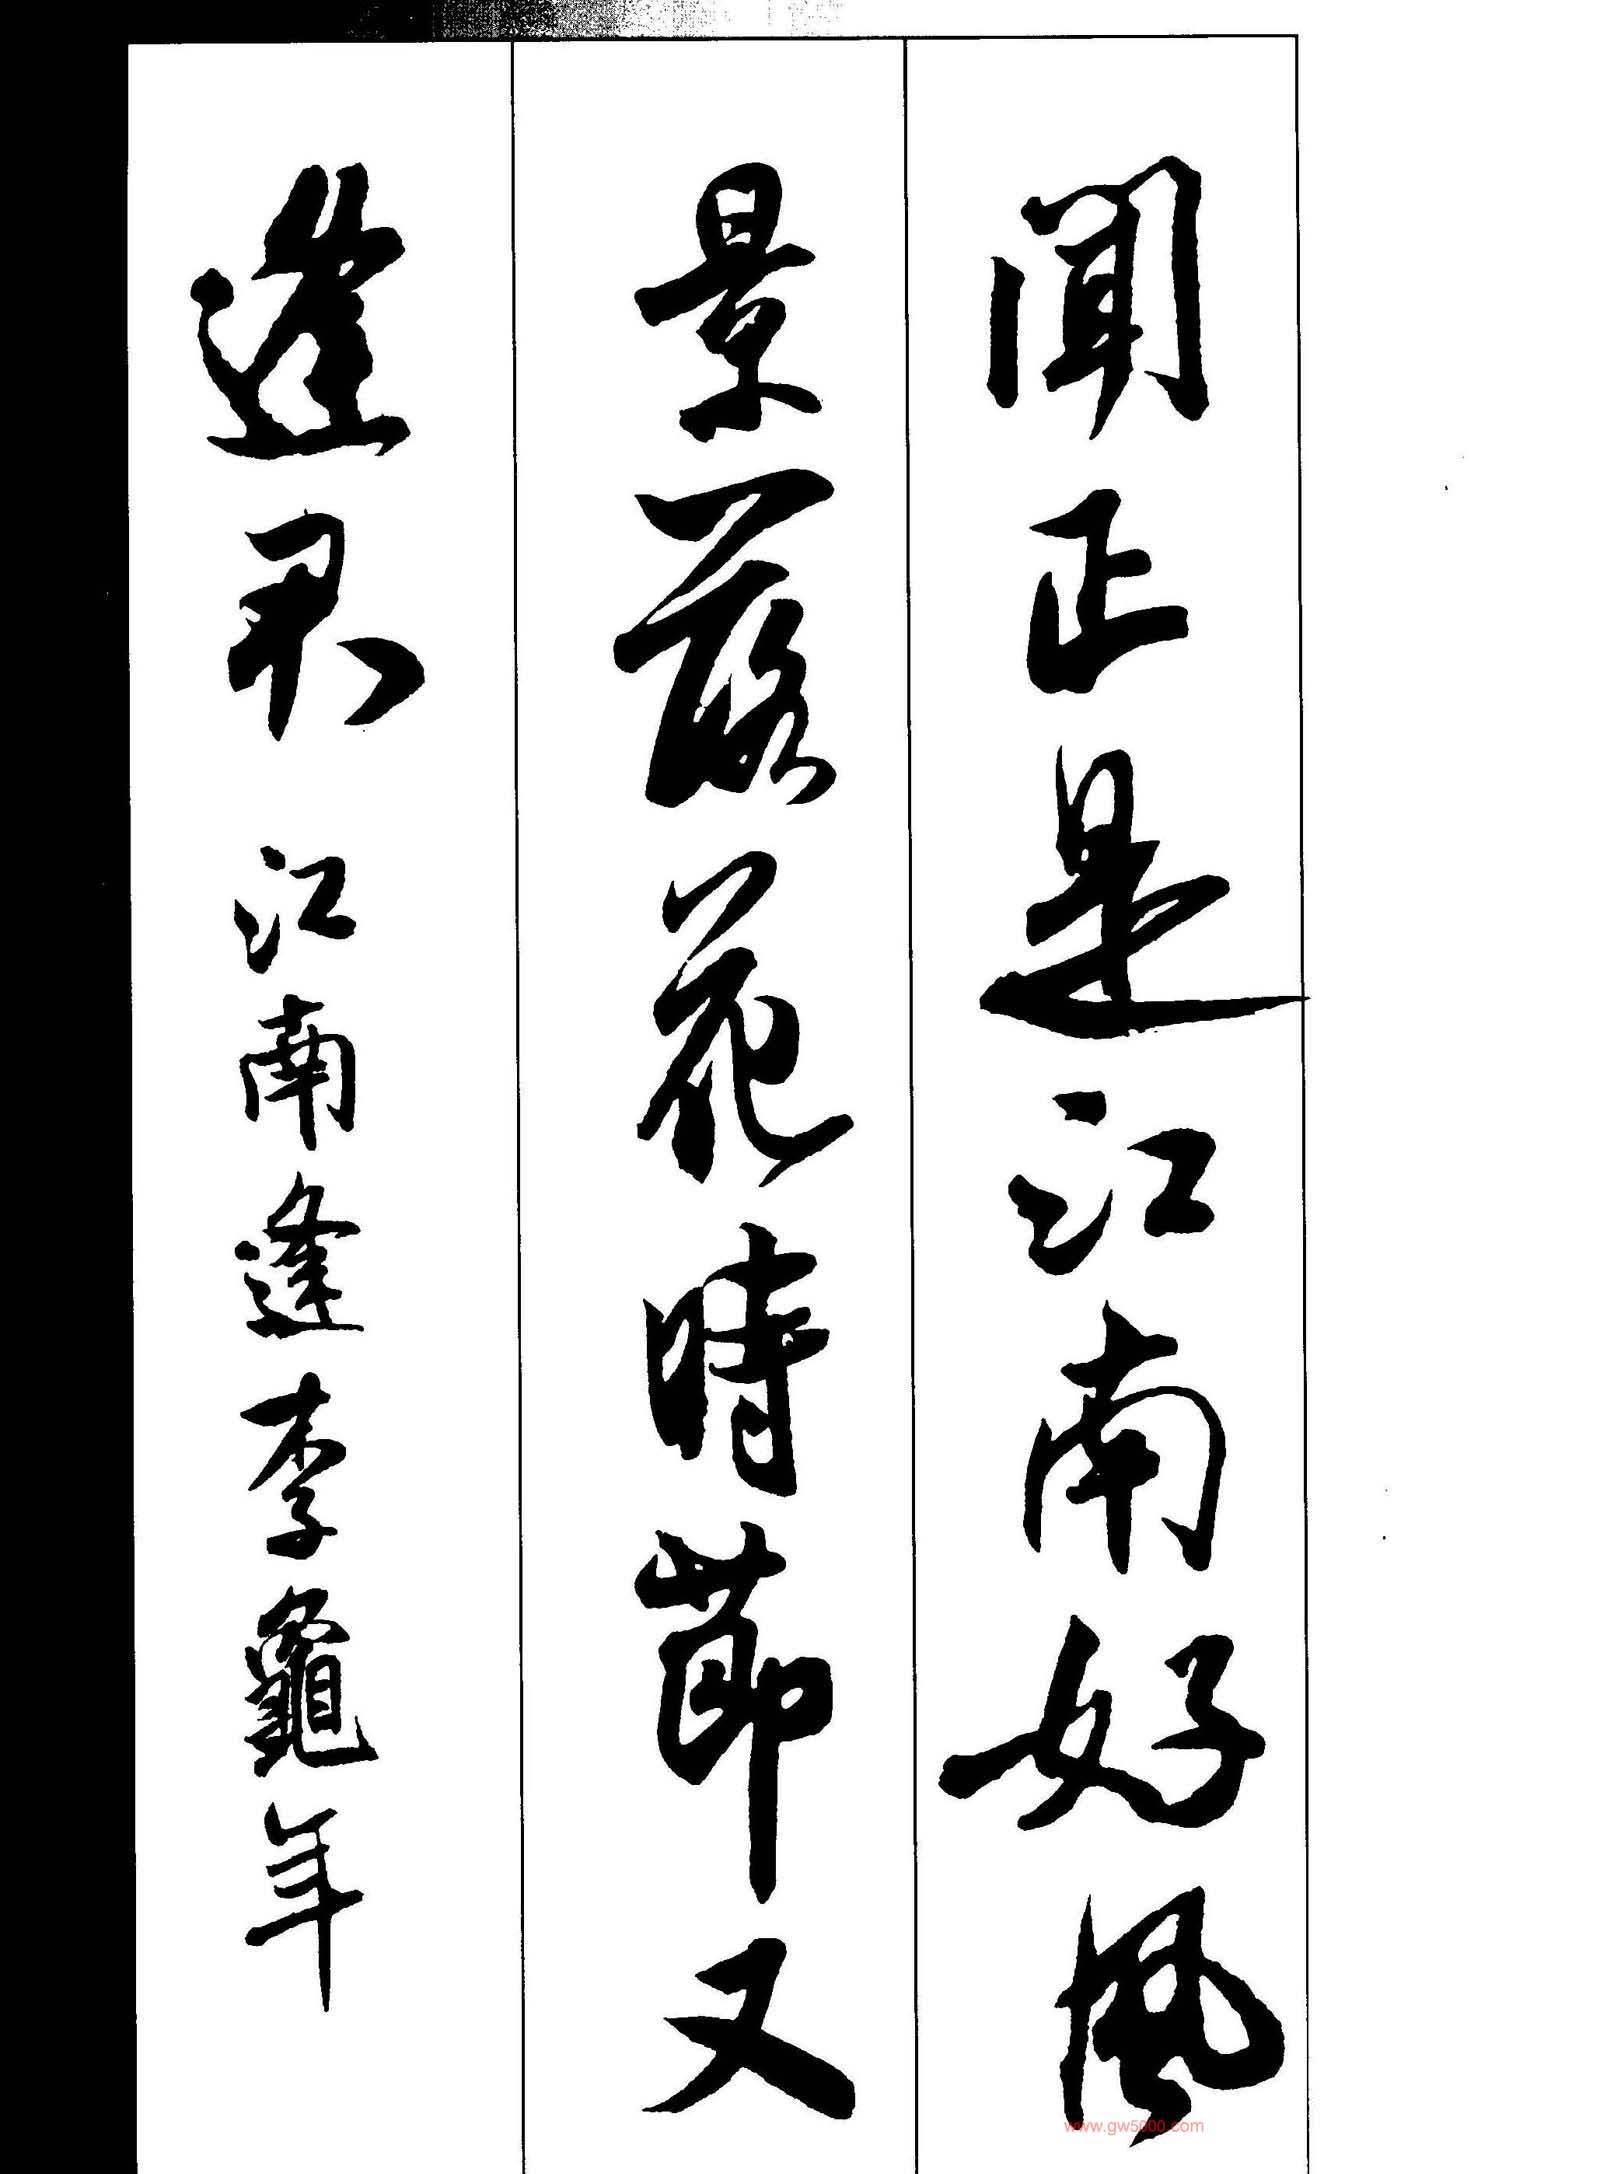 聞正是江南好風
景落花時節又
逢君 江南逢李龜年
www.gw5000.com